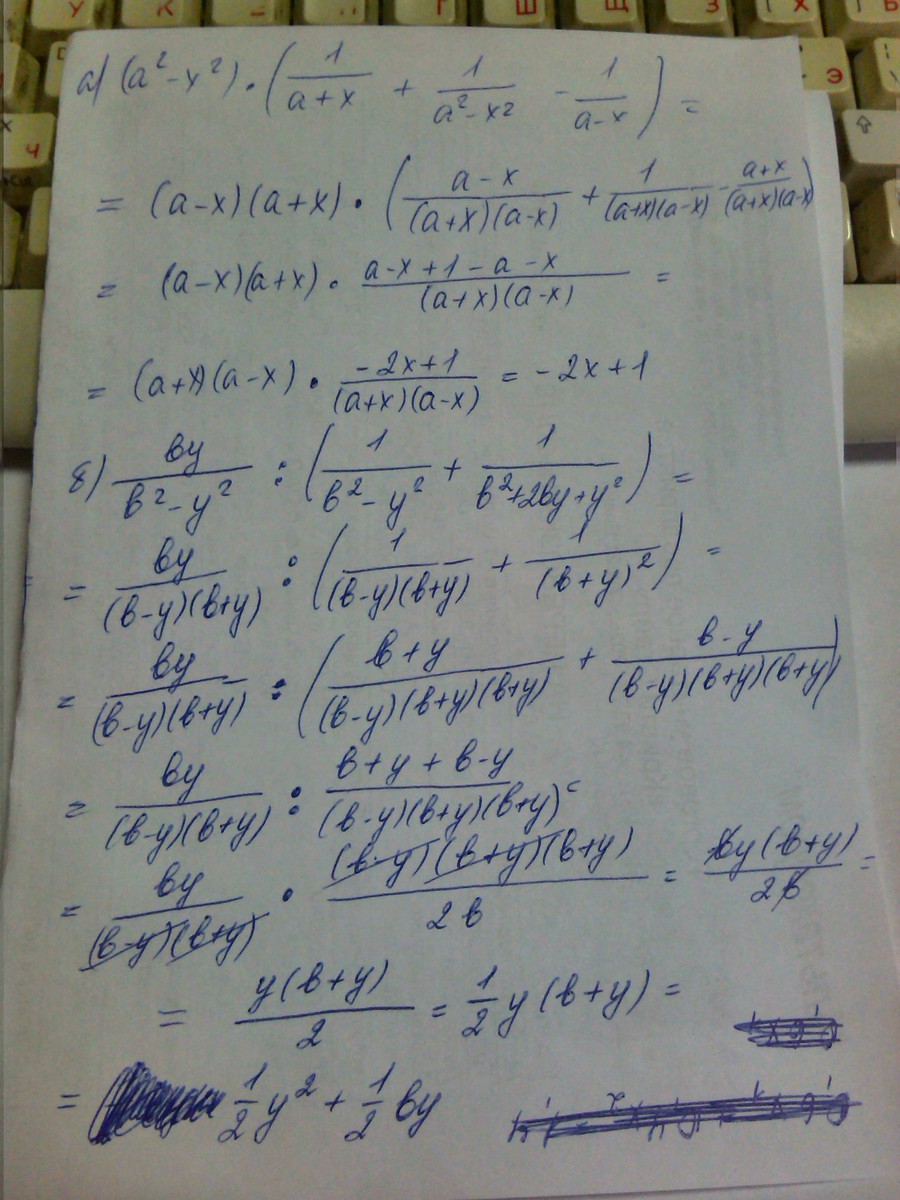 У К Г Ш Щ З Х Ъ
Э
Ч
а) (a² - x²) · (1/(a+x) + 1/(a²-x²) - 1/(a-x)) =
= (a-x)(a+x) · ((a-x)/((a+x)(a-x)) + 1/((a+x)(a-x)) - (a+x)/((a+x)(a-x)))
= (a-x)(a+x) · (a-x+1-a-x)/((a+x)(a-x)) =
= (a+x)(a-x) · (-2x+1)/((a+x)(a-x)) = -2x+1
б) вy/(в²-y²) : (1/(в²-y²) + 1/(в²+2вy+y²)) =
= вy/((в-y)(в+y)) : (1/((в-y)(в+y)) + 1/(в+y)²) =
= вy/((в-y)(в+y)) : ((в+y)/((в-y)(в+y)(в+y)) + (в-y)/((в-y)(в+y)(в+y)))
= вy/((в-y)(в+y)) : (в+y+в-y)/((в-y)(в+y)(в+y)) =
= вy/((в-y)(в+y)) · ((в-y)(в+y)(в+y))/2в = вy(в+y)/2в =
= y(в+y)/2 = 1/2 y(в+y) =
= 1/2 y² + 1/2 вy